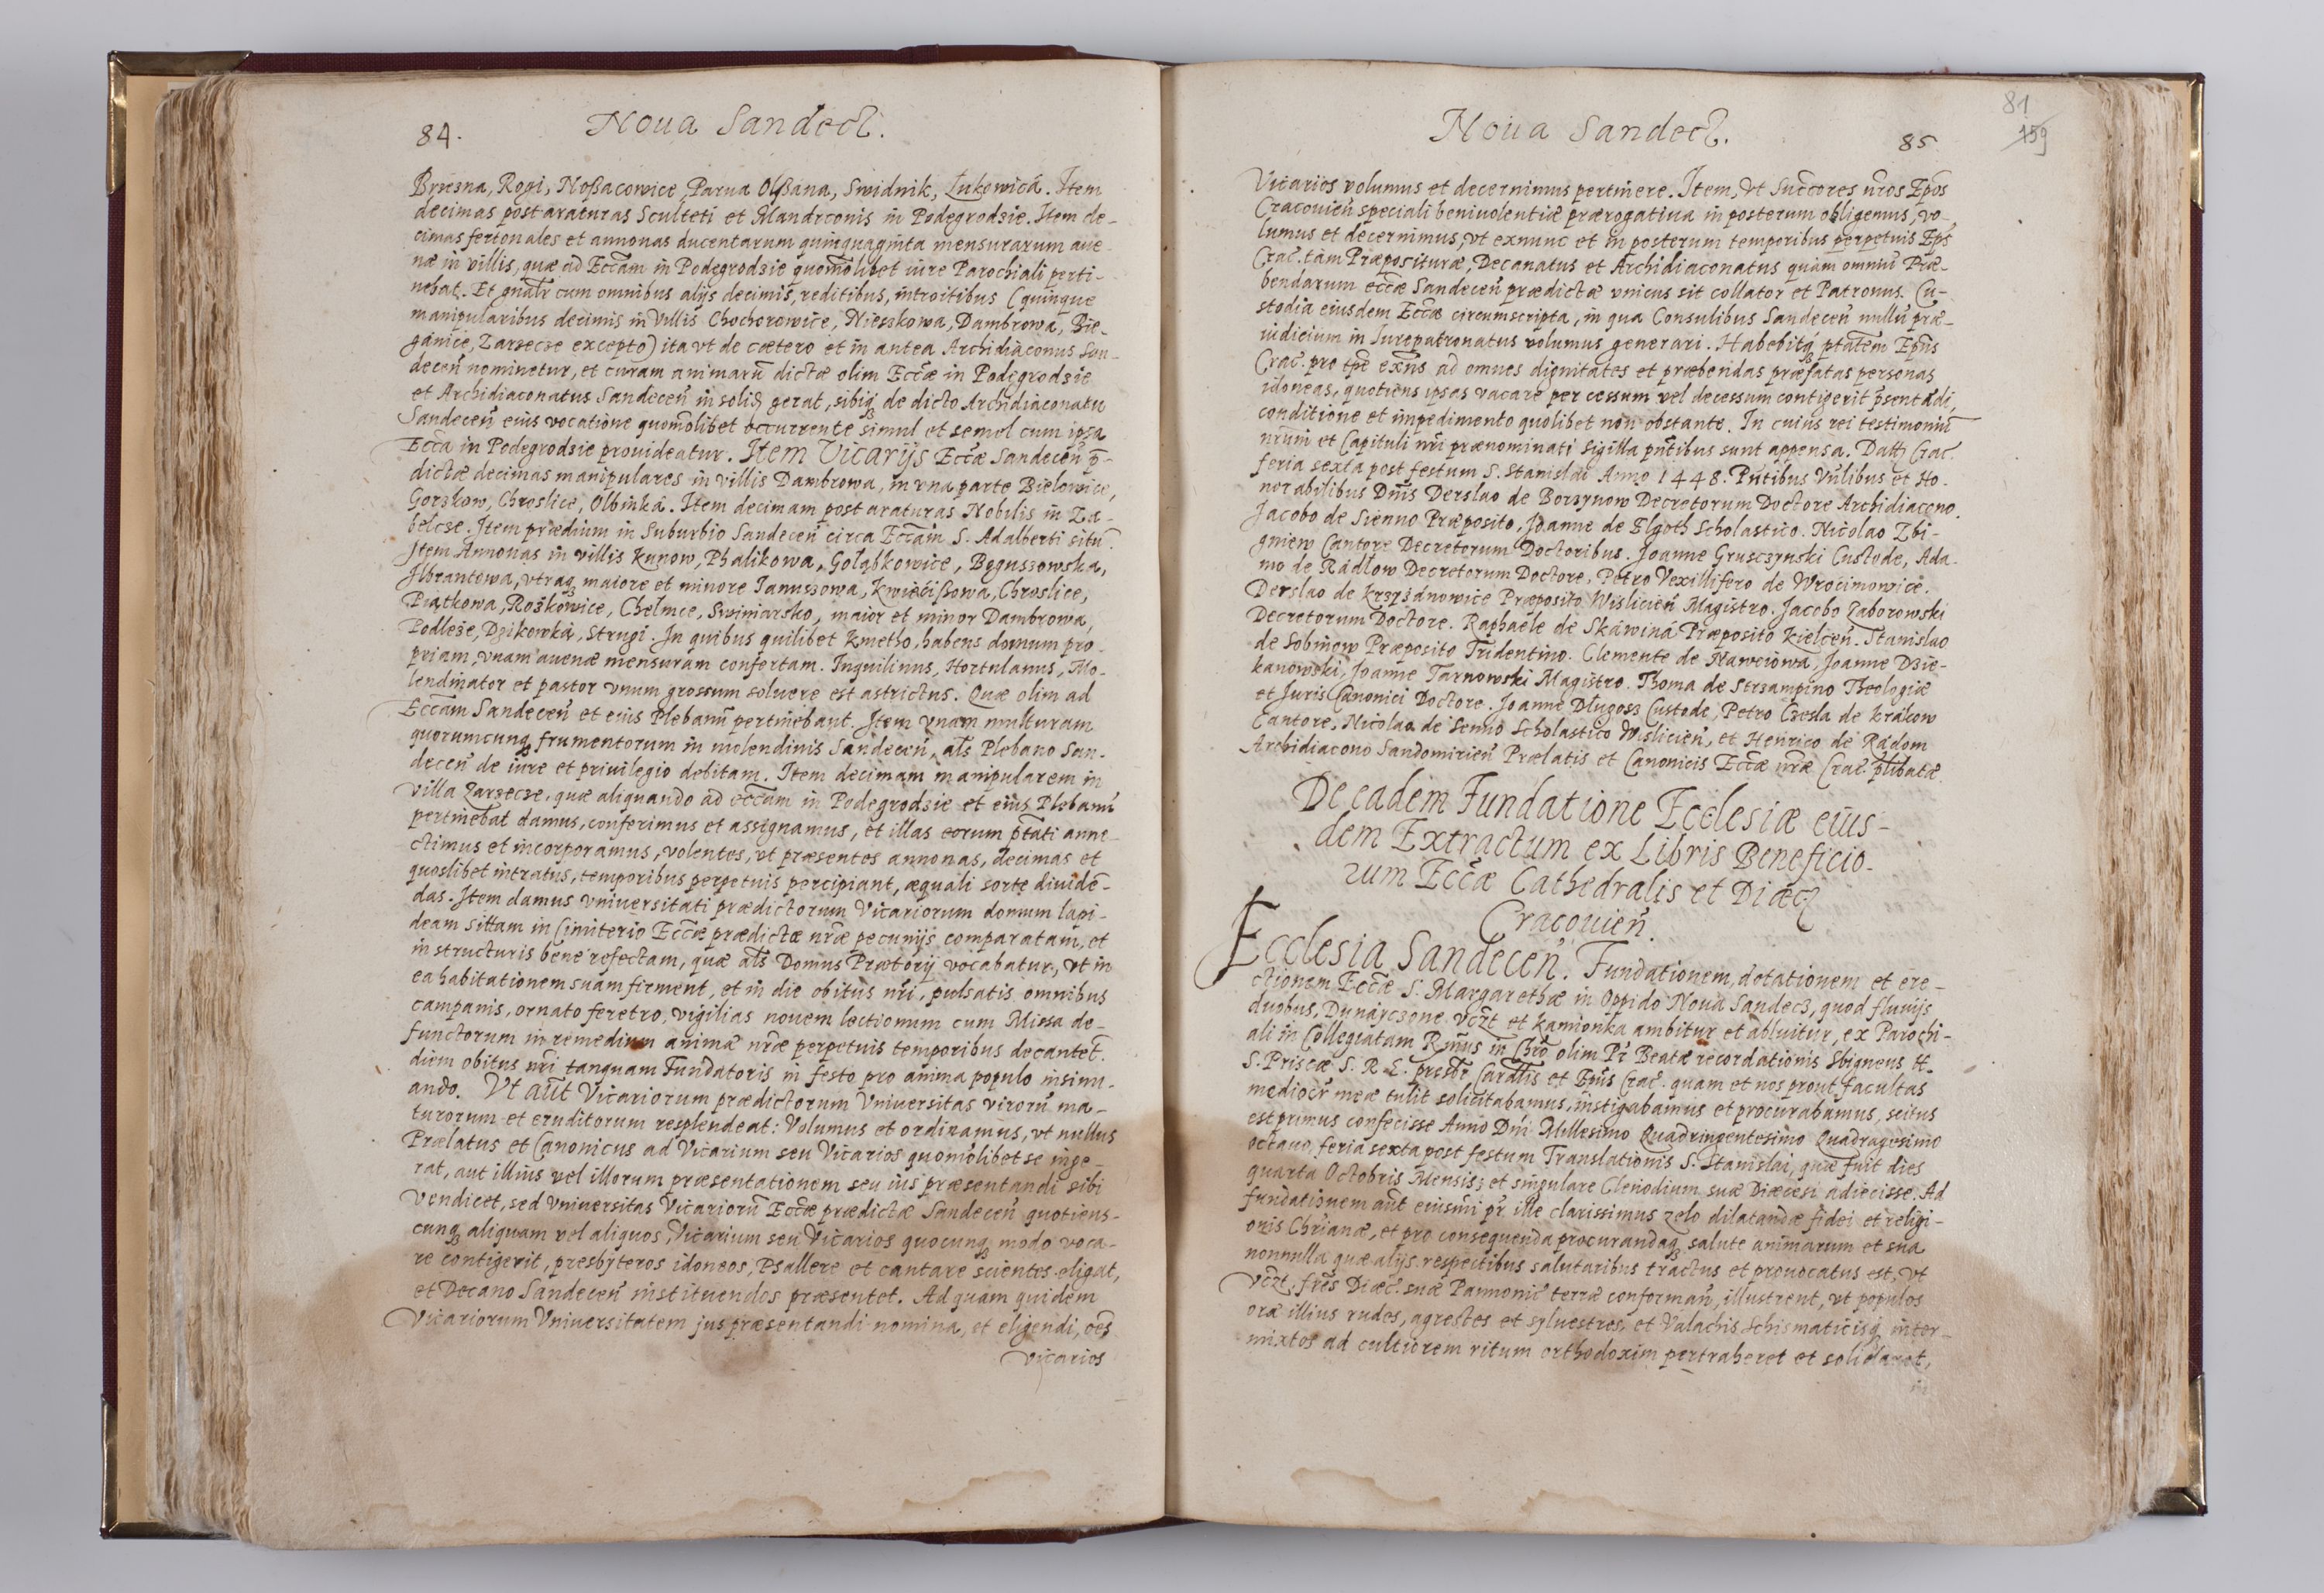 84.
Noua Sandecz.
Brzezna, Ropi, Noßacowice, Parua Olßana, Swidnik, Łukowicá. Item
decimas post araturas Sculteti et Mandrconis in Podegrodzie. Item de-
cimas fertonales et annonas ducentarum quinquaginta mensurarum aue-
næ in villis, quæ ad Eccãm in Podegrodzie quomõlibet iure Parochiali perti-
nebat. Et gnãlr cum omnibus alijs decimis, reditibus, introitibus (quinque
manipularibus decimis in Villis Chochorowice, Nieszkowa, Dambrowa, Bie-
gánice, Zarzecze excepto) ita vt de cætero et in antea Archidiaconus San-
deceñ nominetur, et curam animarũ dictæ olim Eccæ in Podegrodzie
et Archidiaconatus Sandeceñ in solid gerat, sibiq de dicto Archidiaconatu
Sandeceñ eius vocatione quomõlibet occurrente simul et semel cum ipsa
Eccã in Podegrodzie prouideatur. Item Vicarijs Eccæ Sandeceñ p̃-
dictæ decimas manipulares in villis Dambrowa, in vna parte Bielowice,
Gorzkow, Chroslice, Olbinka. Item decimam post araturas Nobilis in Za-
belcze. Item prædium in Suburbio Sandeceñ circa Eccãm S. Adalberti sitũ.
Item Annonas in villis Kunow, Phalikowa, Gołąbkowice, Boguszowska,
Ilbrantowa, vtraq maiore et minore Januszowa, Kwieċißowa, Chroslice,
Piątkowa, Rożkowice, Chelmce, Swiniarsko, maior et minor Dambrowa,
Podleże, Dzikowká, Strugi. In quibus quilibet Kmetho, habens domum pro-
priam, vnam auenæ mensuram confertam. Inquilinus, Hortulanus, Mo-
lendinator et pastor vnum grossum soluere est astrictus. Quæ olim ad
Eccãm Sandeceñ et eius Plebanũ pertinebant. Item vnam multuram
quorumcunq frumentorum in molendinis Sandeceñ, als Plebano San-
deceñ de iure et priuilegio debitam. Item decimam manipularem in
villa Zarzecze, quæ aliquando ad eccãm in Podegrodzie et eius Plebanũ
pertinebat damus, conferimus et assignamus, et illas eorum ptãti anne-
ctimus et incorporamus, volentes, vt præsentes annonas, decimas et
quoslibet intratus, temporibus perpetuis percipiant, æquali sorte diuidẽ-
das. Item damus vniuersitati prædictorum Vicariorum domum lapi-
deam sittam in Cimiterio Eccæ prædictæ nræ pecunijs comparatam, et
in structuris bene refectam, quæ als Domus Prætorij vocabatur, vt in
ea habitationem suam firment, et in die obitus nri, pulsatis omnibus
campanis, ornato feretro, vigilias nouem lectionum cum Missa de-
functorum in remedium animæ nræ perpetuis temporibus decantet.
diem obitus nri tanquam Fundatoris in festo pro anima populo insinu-
ando. Vt aũt Vicariorum prædictorum Vniuersitas virorũ ma-
turorum et eruditorum resplendeat: Volumus et ordinamus, vt nullus
Prælatus et Canonicus ad Vicarium seu Vicarios quomõlibet se inge-
rat, aut illius vel illorum præsentationem seu ius præsentandi sibi
vendicet, sed vniuersitas Vicariorũ Eccæ prædictæ Sandeceñ quotiens-
cunq aliquam vel aliquos, Vicarium seu Vicarios quocunq modo voca-
re contigerit, presbyteros idoneos, Psallere et cantare scientes eligat,
et Decano Sandeceñ instituendos præsentet. Ad quam quidem
Vicariorum Vniuersitatem jus præsentandi nomina, et eligendi, oẽs
vicarios
Noua Sandecz.
85
81
159
Vicarios volumus et decernimus pertinere. Item, Vt Succores nros Epos
Cracouieñ speciali beniuolentiæ prærogatiua in posterum obligemus, vo-
lumus et decernimus, vt exnunc et in posterum temporibus perpetuis Eps
Crac. tàm Præposituræ, Decanatus et Archidiaconatus quàm omniũ Præ-
bendarum eccæ Sandeceñ prædictæ vnicus sit collator et Patronus. Cu-
stodia eiusdem Eccæ circumscripta, in qua Consulibus Sandeceñ nullũ præ-
iudicium in Jurepatronatus volumus generari. Habebitq ptãtem Epus
Crac. pro tpe exñs ad omnes dignitates et præbendas præfatas personas
idoneas, quotiens ipsas vacare per cessum vel decessum contigerit psentãdi,
conditione et impedimento quolibet non obstante. In cuius rei testimoniũ
nrum et Capituli nri prænominati sigilla pñtibus sunt appensa. Datt Crac
feria sexta post festum S. Stanislai Anno 1448. Pñtibus Vñlibus et Ho-
norabilibus Dnis Derslao de Borzynow Decretorum Doctore Archidiacono.
Jacobo de Sienno Præposito, Joanne de Elgoth Scholastico. Nicolao Zbi-
gniew Cantore Decretorum Doctoribus. Joanne Gruszczynski Custode, Ada-
mo de Rádlow Decretorum Doctore, Petro Vexillifero de Wrocimowice.
Derslao de Krzyżánowice Præposito Wislicieñ Magistro. Jacobo Zaborowski
Decretorum Doctore. Raphaële de Skáwiná Præposito Kielceñ. Stanislao
de Sobniow Præposito Tridentino. Clemente de Naweiowa, Joanne Dzie-
kanowski, Joanne Tarnowski Magistro. Thoma de Strzampino Theologiæ
et Juris Canonici Doctore. Joanne Długosz Custode, Petro Czesla de Krákow
Cantore, Nicolao de Senno Scholastico Wislicieñ, et Henrico de Rádom
Archidiacono Sandomirieñ Prælatis et Canonicis Eccæ nræ Crac. plibatæ.
De eadem Fundatione Ecclesiæ eius-
dem Extractum ex Libris Beneficio-
rum Eccæ Cathedralis et Diæc
Cracouieñ.
Ecclesia Sandeceñ. Fundationem, dotationem et ere-
ctionem Eccæ S. Margarethæ in Oppido Noua Sandecz, quod fluuijs
duobus, Dunáyczone vczt et Kamionka ambitur et abluitur, ex Parochi-
ali in Collegiatam Rmus in Chro olim Pr Beatæ recordationis Sbigneus tt.
S. Priscæ S. R. E. presbr Cardlis et Epus Crac. quam et nos prout facultas
mediocr meæ tulit solicitabamus, instigabamus et procurabamus, scitus
est primus confecisse Anno Dni Millesimo Quadringentesimo Quadragesimo
octauo, feria sexta post festum Translationis S. Stanislai, quæ fuit dies
quarta Octobris Mensis; et singulare Clenodium suæ Diæcesi adiecisse. Ad
fundationem aũt eiusmi pr ille clarissimus zelo dilatandæ fidei et religi-
onis Chrianæ, et pro consequenda procurandaq salute animarum et sua
nonnulla quæ alijs respectibus salutaribus tractus et prouocatus est, vt
vczt, fres Diæc. suæ Pannonic terræ conforman, illustrent, vt populos
oræ illius rudes, agrestes et syluestres, et Valachis Schismaticisq inter-
mixtos ad cultiorem ritum orthodoxim pertraheret et solidaret,